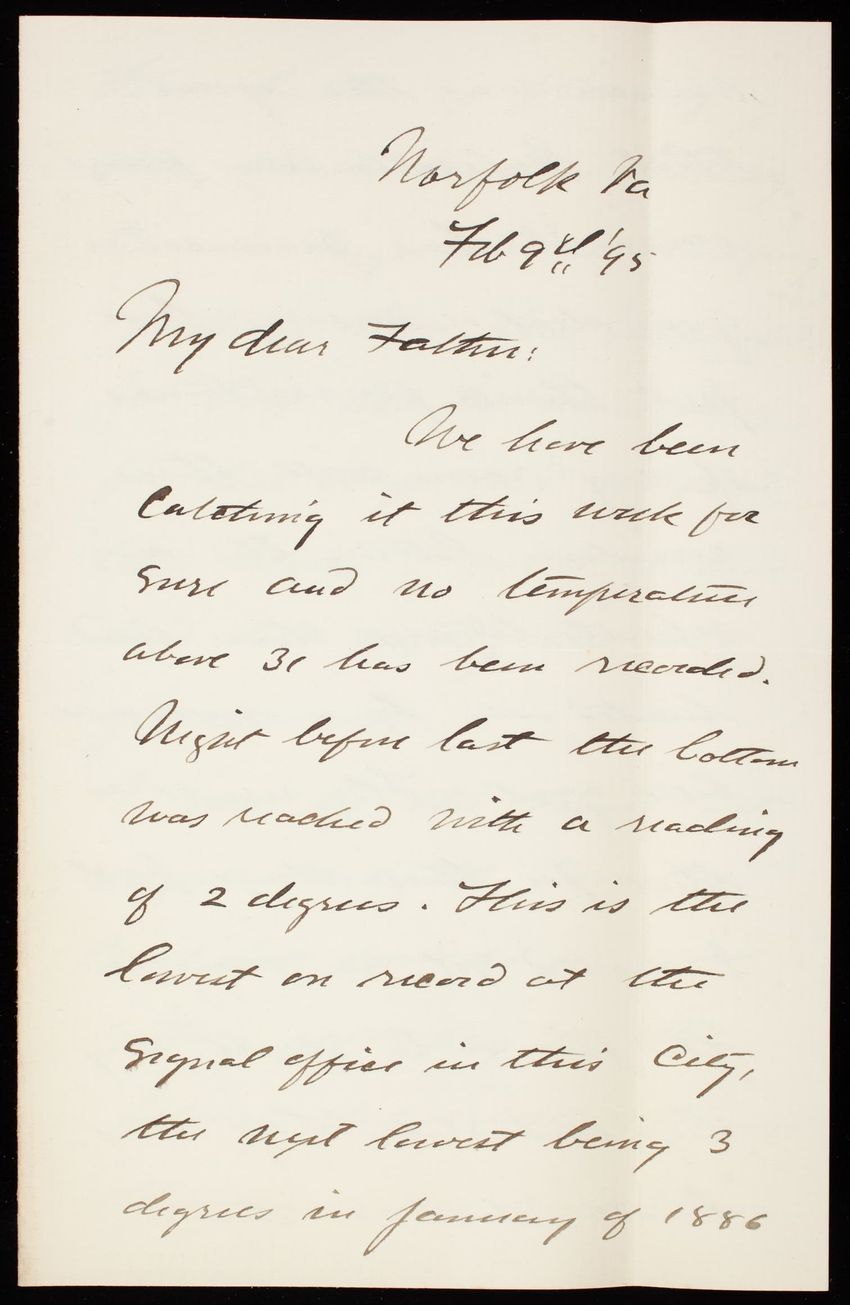 Norfolk Va
Feb 9th '95
My dear Father:
We have been
Catching it this week for
sure and no temperature
above 31 has been recorded.
Night before last the bottom
was reached with a reading
of 2 degrees. This is the
lowest on record at the
Signal office in this City,
the next lowest being 3
degrees in January of 1886